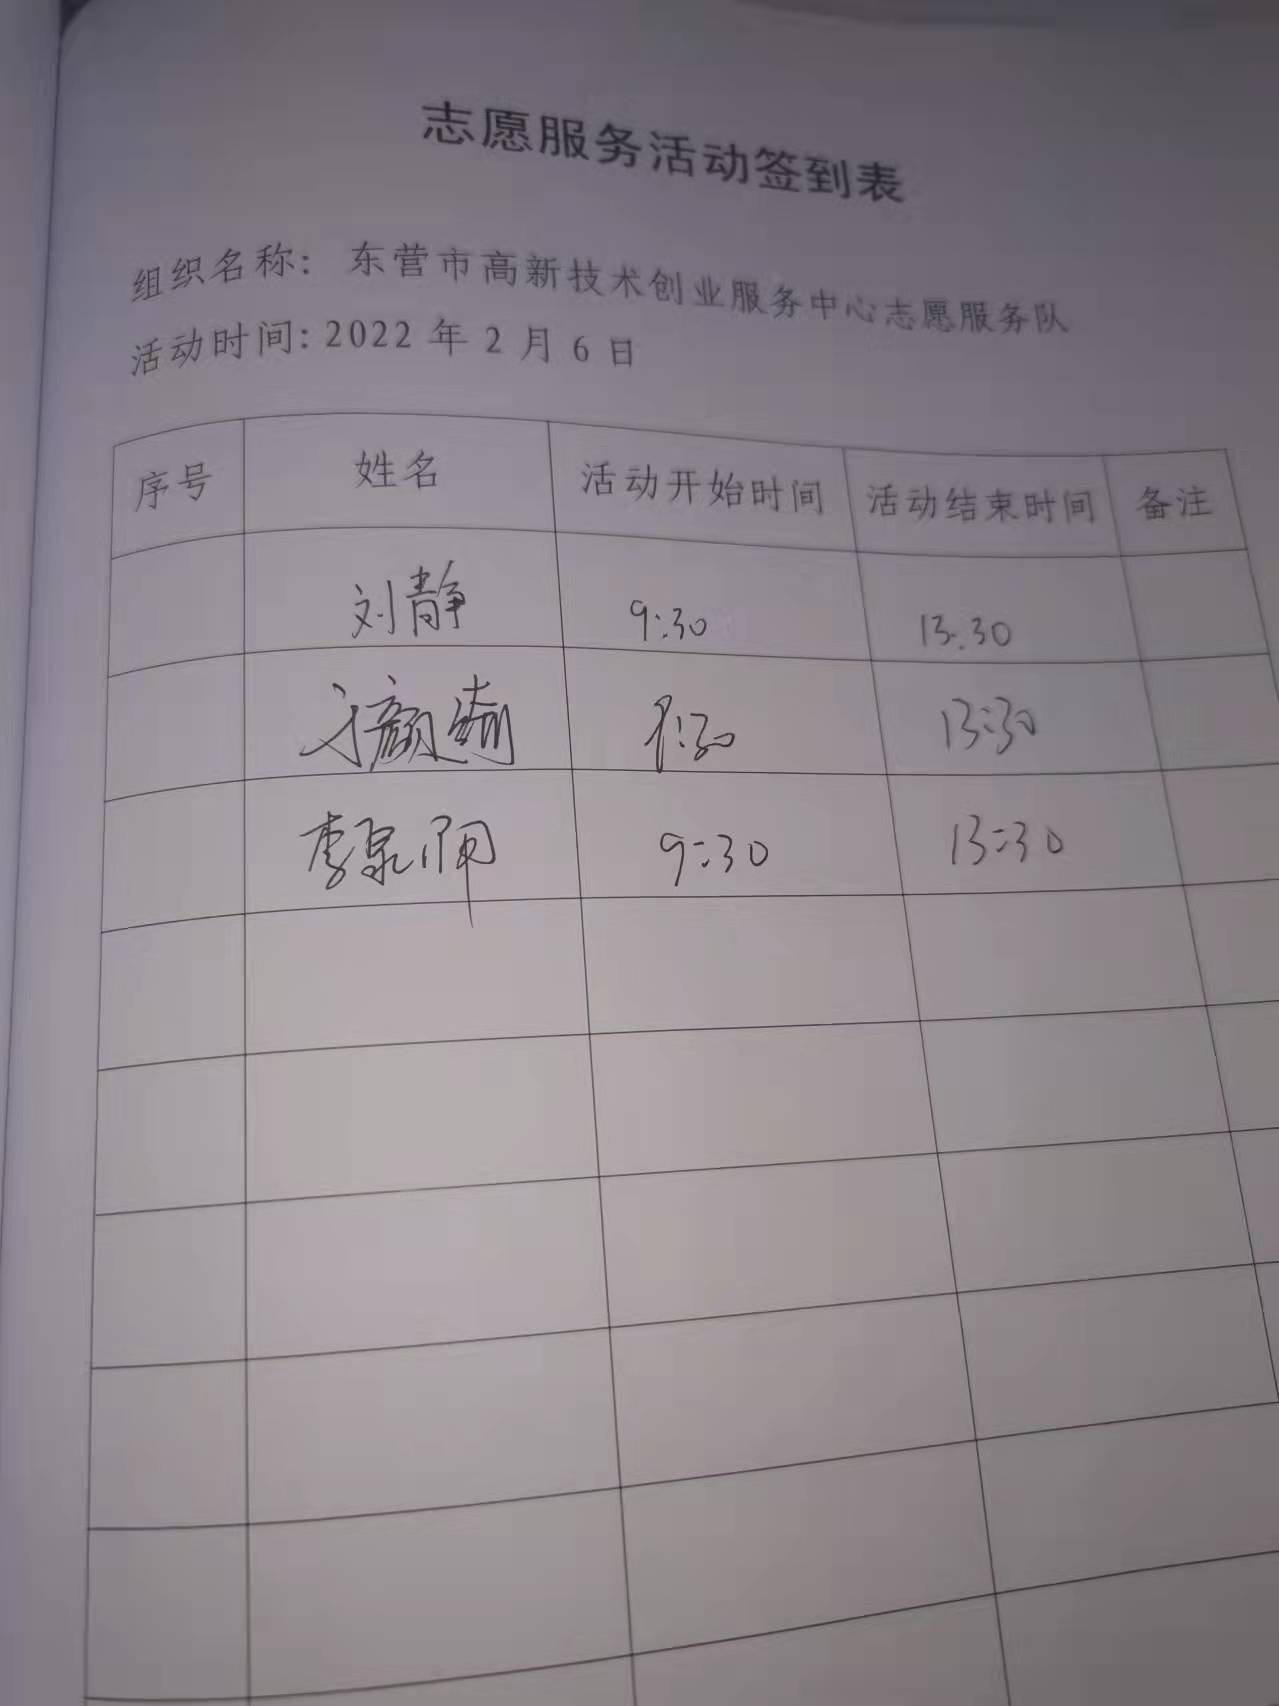 志愿服务活动签到表
组织名称: 东营市高新技术创业服务中心志愿服务队
活动时间: 2022 年 2 月 6 日
序号 姓名 活动开始时间 活动结束时间 备注
刘静 9:30 13:30
:30 13:30
李泉 9:30 13:30